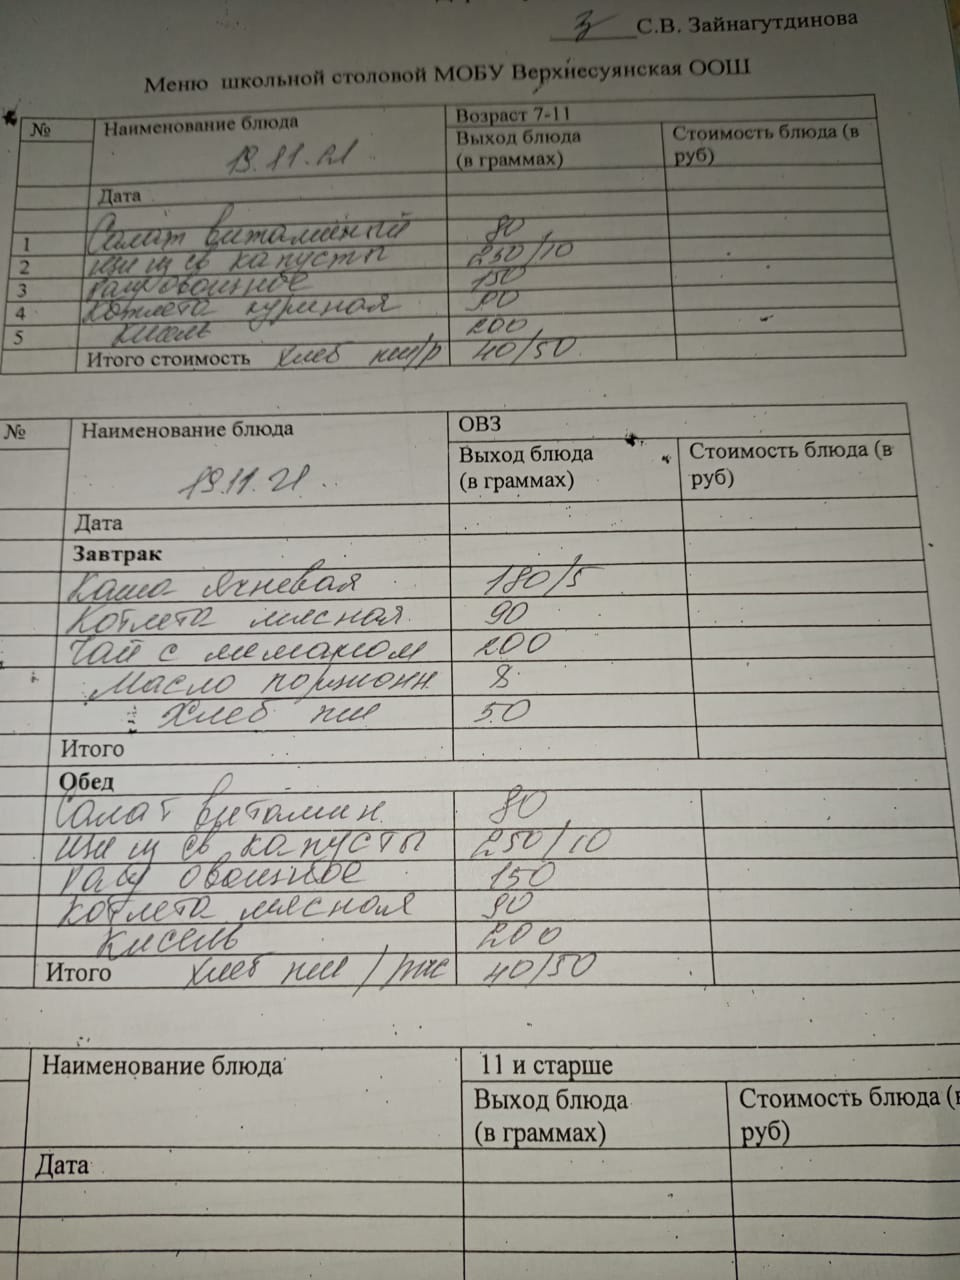 С.В. Зайнагутдинова
Меню школьной столовой МОБУ Верхнесуянская ООШ
№ Наименование блюда Возраст 7-11
Выход блюда (в граммах) Стоимость блюда (в руб)
19.11.21
Дата
1 Салат витаминный 80
2 Щи из св капусты 250/10
3 Рагу овощное 150
4 Котлета куриная 90
5 Кисель 200
Итого стоимость Хлеб пш/р 40/50
№ Наименование блюда ОВЗ
Выход блюда (в граммах) Стоимость блюда (в руб)
19.11.21
Дата
Завтрак
Каша ячневая 180/5
Котлета мясная 90
Чай с лимоном 200
Масло порционн 8
Хлеб пш 50
Итого
Обед
Салат витамин. 80
Щи из св капусты 250/10
Рагу овощное 150
Котлета мясная 90
Кисель 200
Итого Хлеб пш/рж 40/50
Наименование блюда 11 и старше
Выход блюда (в граммах) Стоимость блюда (в руб)
Дата